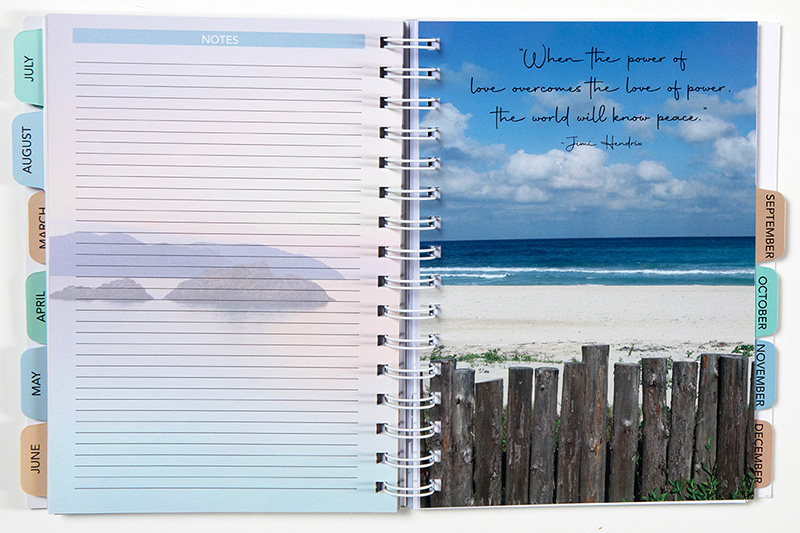 JULY
AUGUST
MARCH
APRIL
MAY
JUNE
NOTES
"When the power of
love overcomes the love of power,
the world will know peace."
-Jimi Hendrix
SEPTEMBER
OCTOBER
NOVEMBER
DECEMBER